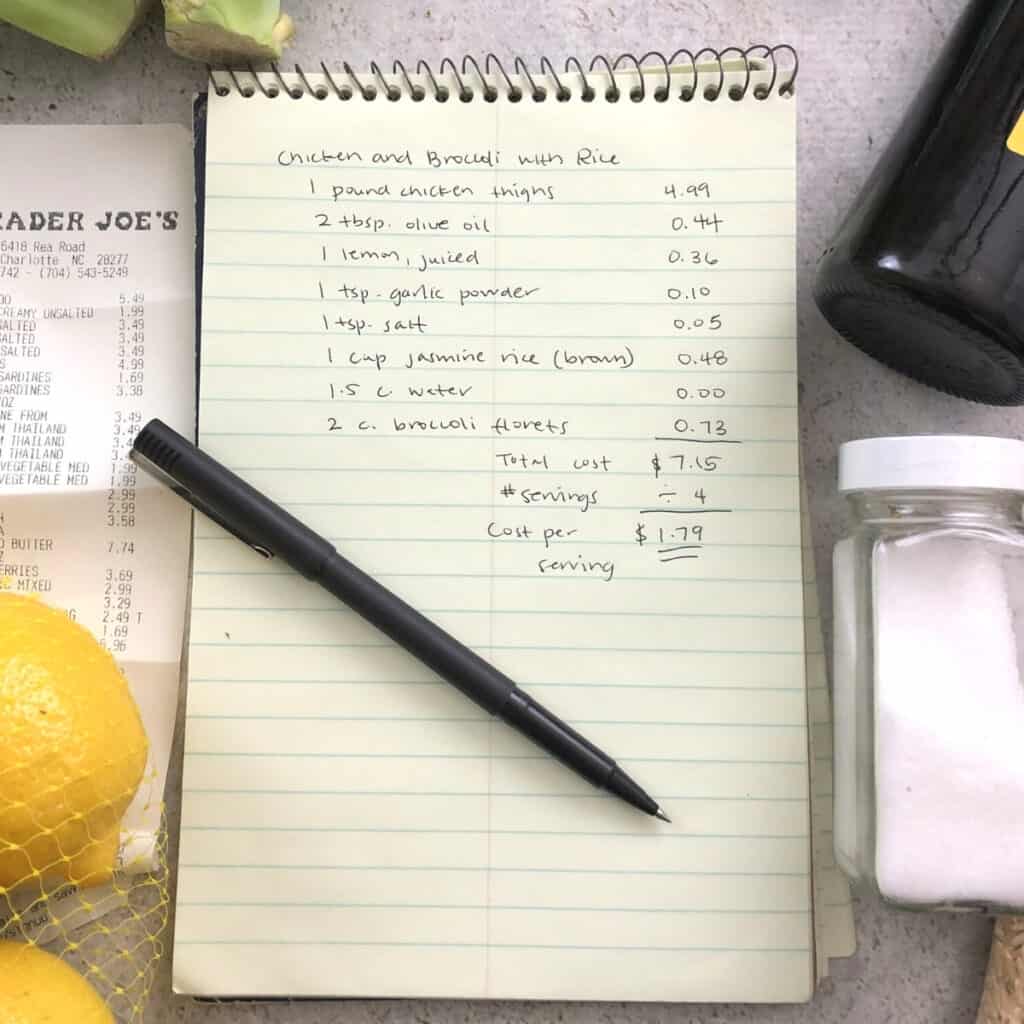 Chicken and Broccoli with Rice
1 pound chicken thighs 4.99
2 tbsp. olive oil 0.44
1 lemon, juiced 0.36
1 tsp. garlic powder 0.10
1 tsp. salt 0.05
1 cup jasmine rice (brown) 0.48
1.5 c. water 0.00
2 c. broccoli florets 0.73
Total cost $7.15
# servings ÷ 4
Cost per $1.79
serving
RADER JOE'S
6418 Rea Road
Charlotte NC 28277
742 - (704) 543-5249
5.49
CREAMY UNSALTED 1.99
SALTED 3.49
SALTED 3.49
SALTED 3.49
S 4.99
SARDINES 1.69
SARDINES 3.38
OZ
NE FROM 3.49
M THAILAND 3.49
M THAILAND
VEGETABLE MED 1.99
VEGETABLE MED 1.99
2.99
2.99
3.58
BUTTER 7.74
ERRIES 3.69
MIXED 2.99
3.29
2.49 T
1.69
.96